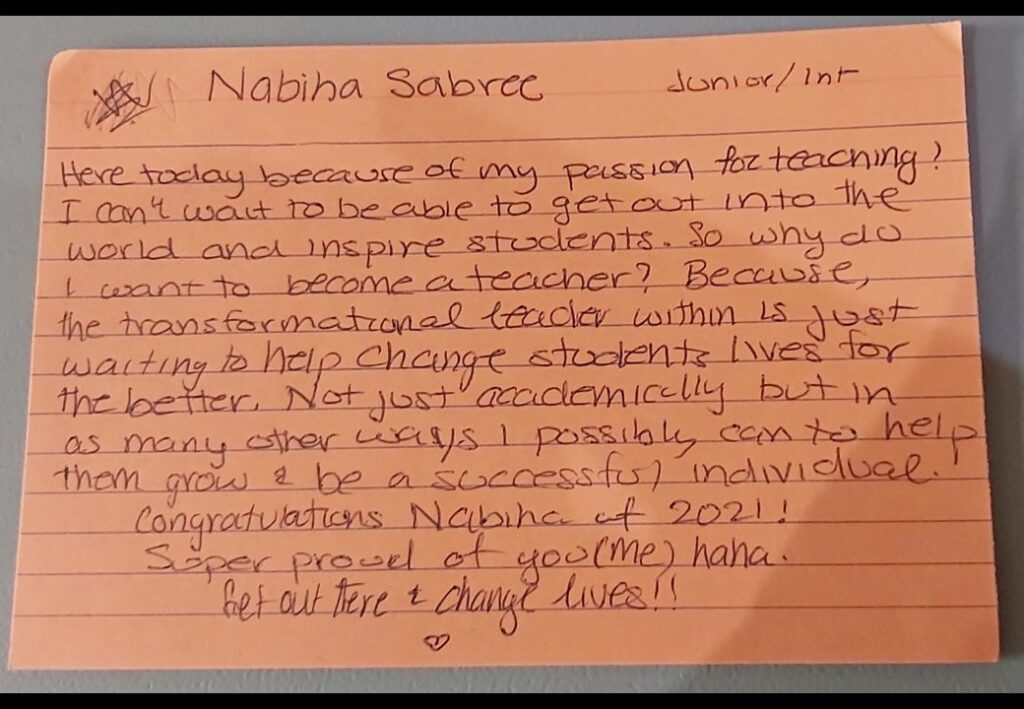 Nabiha Sabree Junior/Int
Here today because of my passion for teaching!
I can't wait to be able to get out into the
world and inspire students. So why do
I want to become a teacher? Because,
the transformational leader within is just
waiting to help change students lives for
the better. Not just academically but in
as many other ways I possibly can to help
them grow & be a successful individual.
Congratulations Nabiha of 2021!
Super proud of you (me) haha.
Get out there & change lives!!